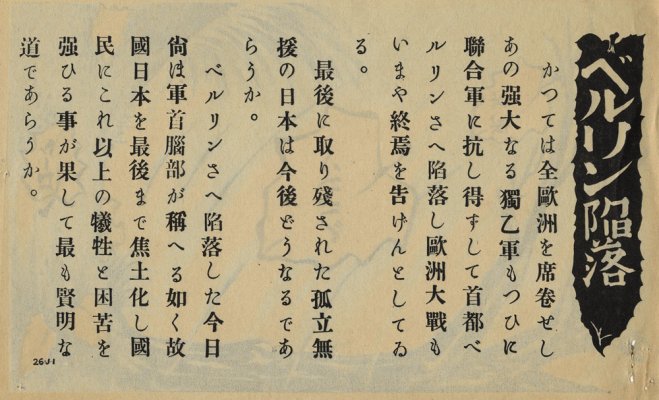 ベルリン陥落
かつては全歐洲を席卷せし
あの强大なる獨乙軍もつひに
聯合軍に抗し得ずして首都ベ
ルリンさへ陥落し歐洲大戰も
いまや終焉を告げんとしてゐ
る。
最後に取り殘された孤立無
援の日本は今後どうなるであ
らうか。
ベルリンさへ陥落した今日
尙ほ軍首腦部が稱へる如く故
國日本を最後まで焦土化し國
民にこれ以上の犧牲と困苦を
强ひる事が果して最も賢明な
道であらうか。
26-J-1